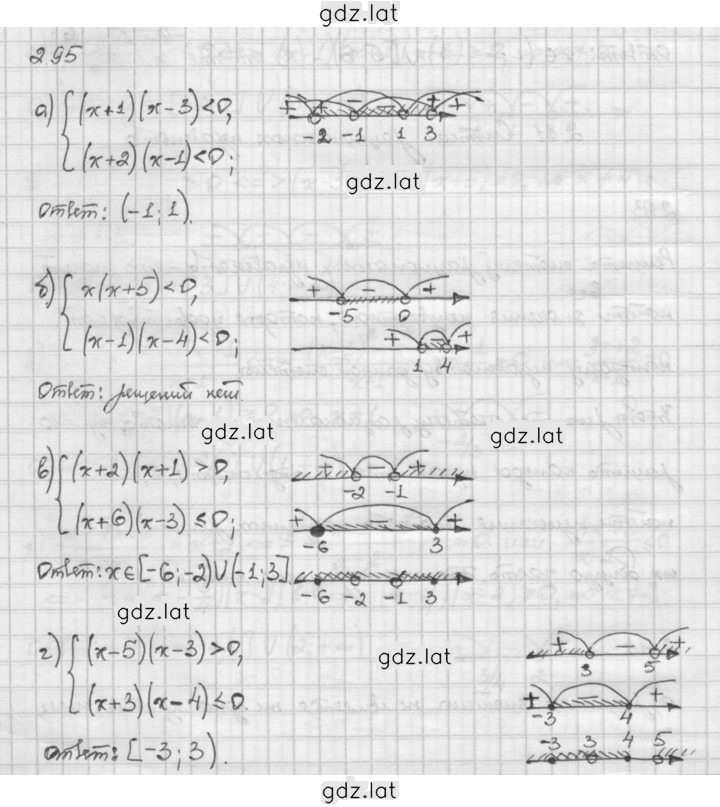 gdz.lat
2.95
а) { (x+1)(x-3)<0,
+ + - + +
-2 -1 1 3
(x+2)(x-1)<0;
gdz.lat
Ответ: (-1; 1).
б) { x(x+5)<0,
+ - +
-5 0
(x-1)(x-4)<0;
+ - +
1 4
Ответ: решений нет.
gdz.lat
gdz.lat
в) { (x+2)(x+1) > 0,
+ - +
-2 -1
(x+6)(x-3) ≤ 0;
+ - +
-6 3
Ответ: x∈[-6;-2)∪(-1;3].
-6 -2 -1 3
gdz.lat
г) { (x-5)(x-3)>0,
+ - +
3 5
gdz.lat
(x+3)(x-4)≤0.
+ - +
-3 4
Ответ: [-3; 3).
-3 3 4 5
gdz.lat